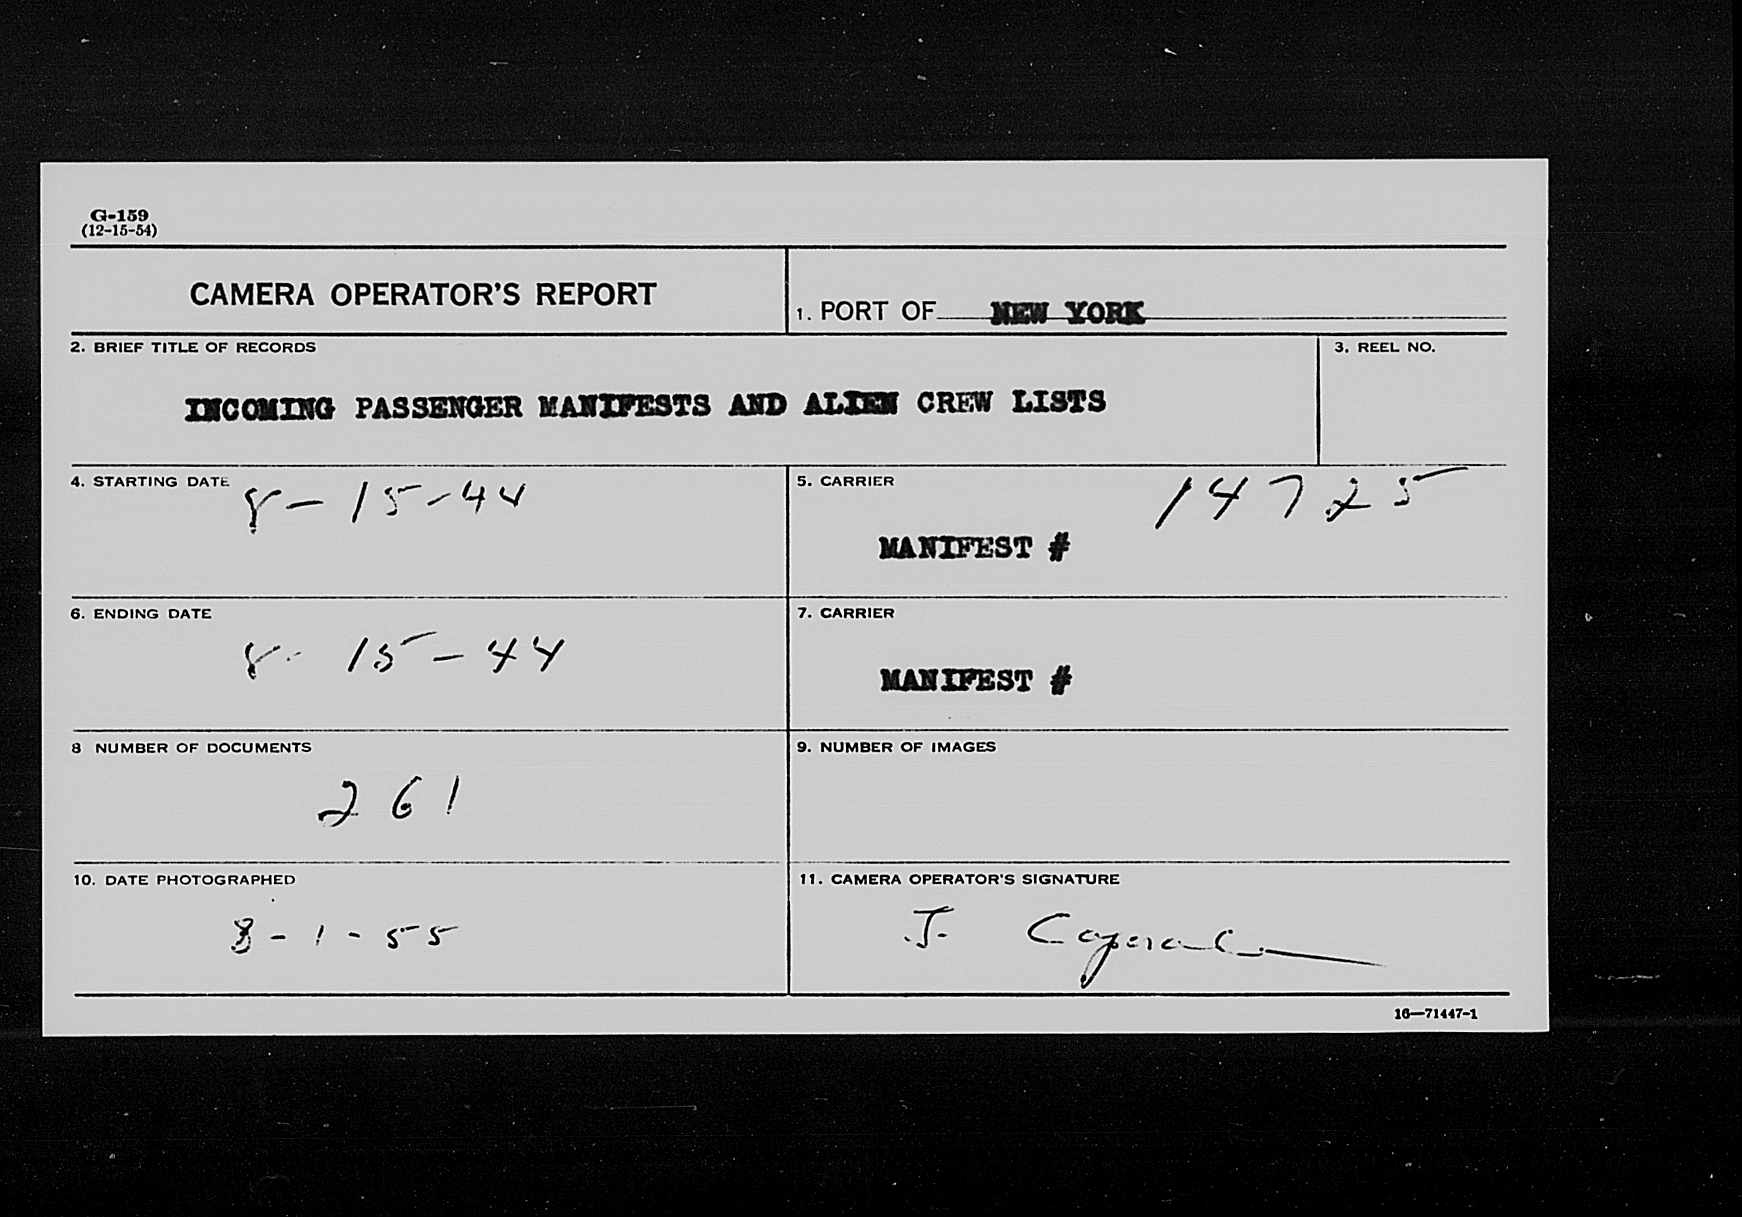 G-159
(12-15-54)
CAMERA OPERATOR'S REPORT
1. PORT OF NEW YORK
2. BRIEF TITLE OF RECORDS
3. REEL NO.
INCOMING PASSENGER MANIFESTS AND ALIEN CREW LISTS
4. STARTING DATE 8-15-44
5. CARRIER 14725
MANIFEST #
6. ENDING DATE
8-15-44
7. CARRIER
MANIFEST #
8 NUMBER OF DOCUMENTS
261
9. NUMBER OF IMAGES
10. DATE PHOTOGRAPHED
8-1-55
11. CAMERA OPERATOR'S SIGNATURE
J.
16—71447-1